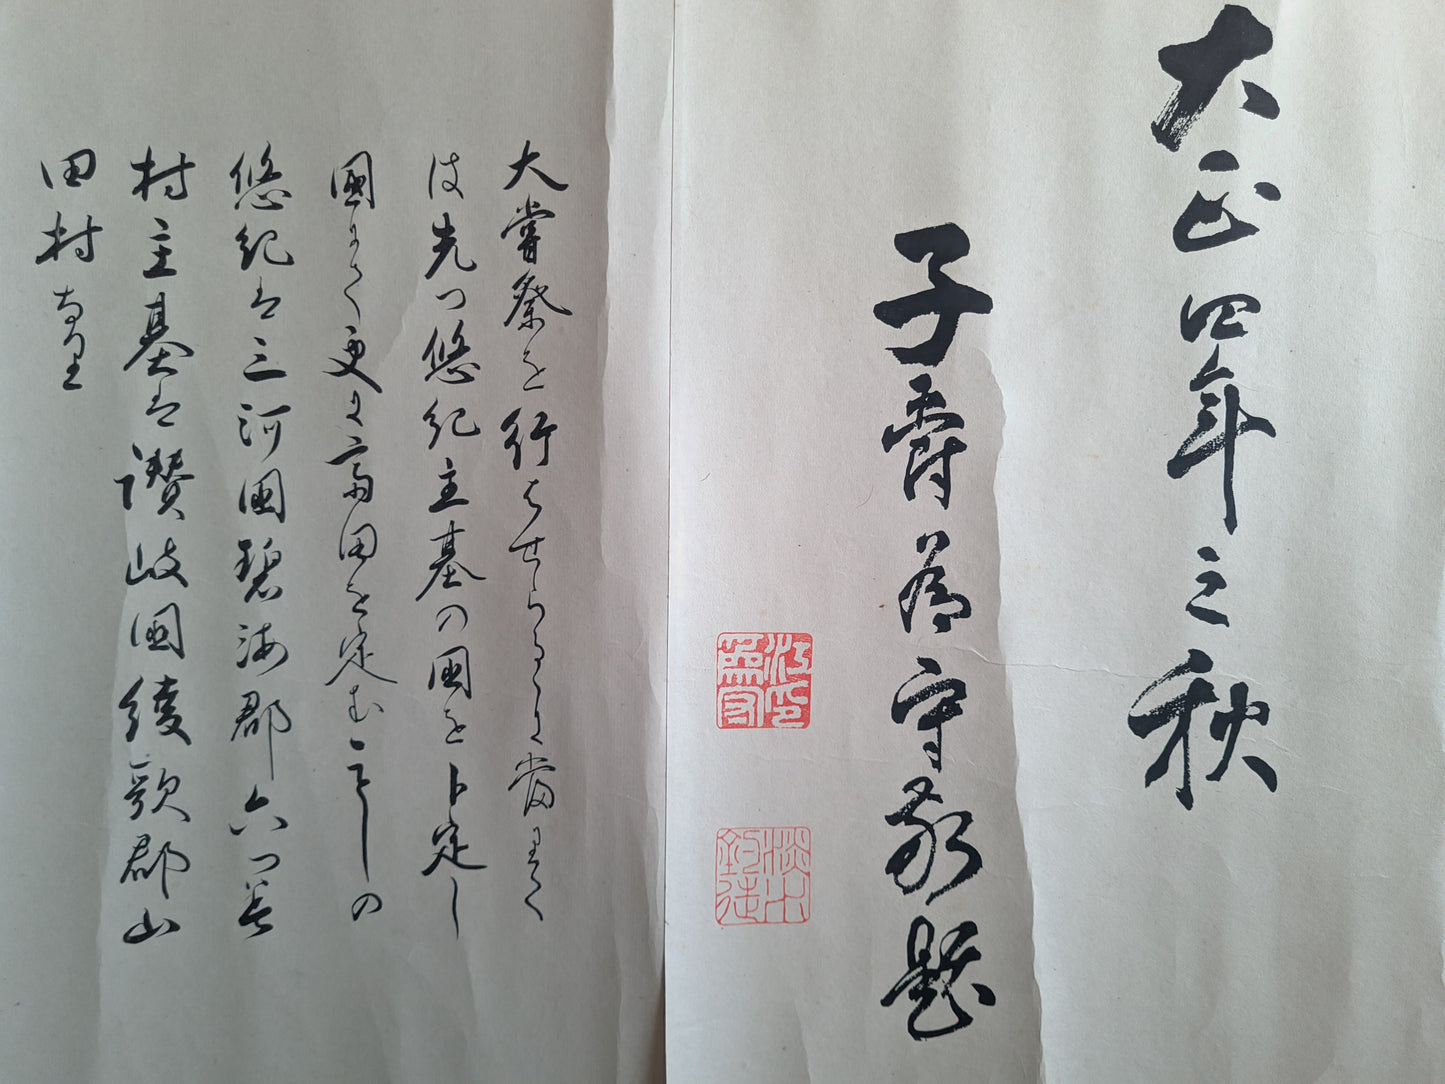 大正四年之秋
子爵為守敬題
江印為守
釣徒
大嘗祭を行はせらるゝに當りて
は先つ悠紀主基の國を卜定し
國にて更に齋田を定む の
悠紀は三河國碧海郡六つ美
村主基は讃岐國綾歌郡山
田村なり